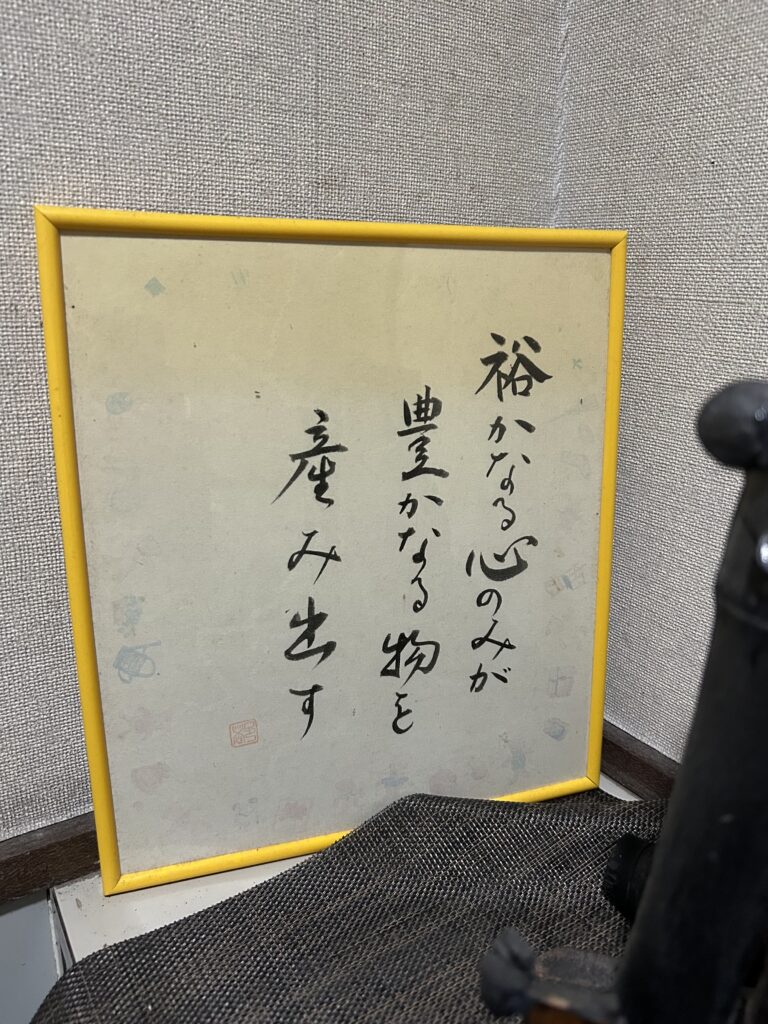 裕かなる心のみが
豊かなる物を
産み出す